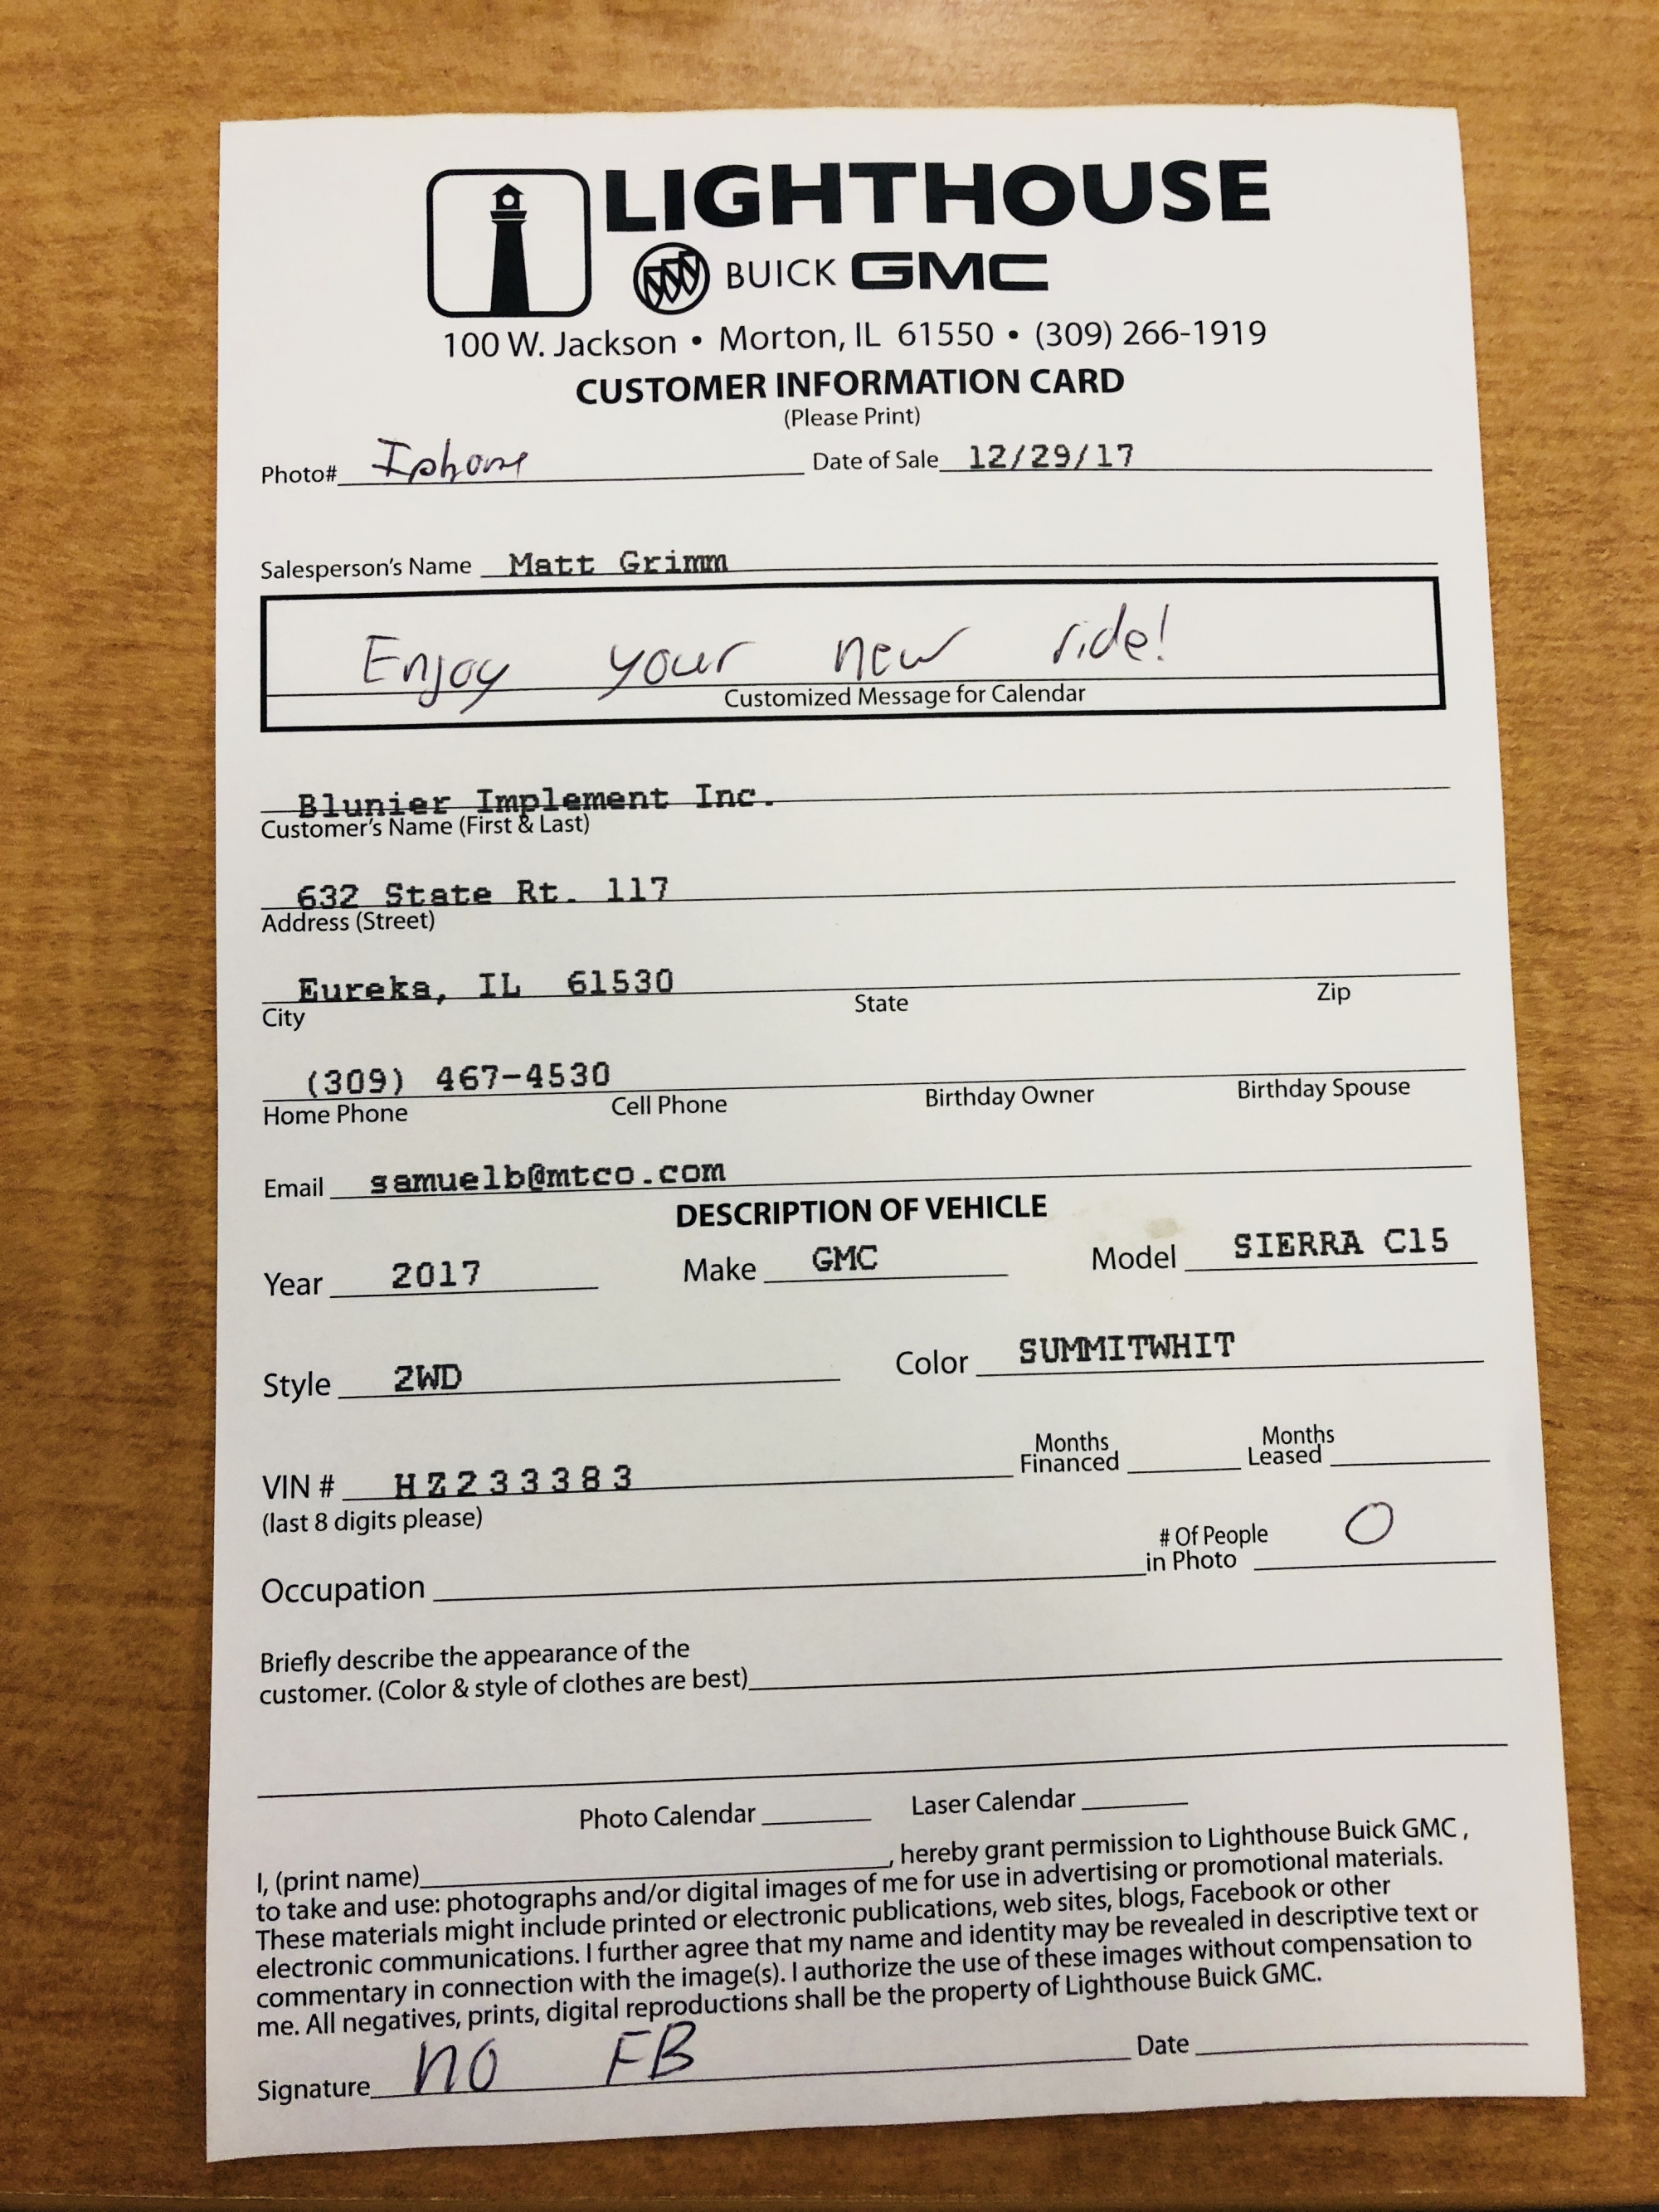 LIGHTHOUSE
BUICK GMC
100 W. Jackson • Morton, IL 61550 • (309) 266-1919
CUSTOMER INFORMATION CARD
(Please Print)
Photo# Iphone Date of Sale 12/29/17
Salesperson's Name Matt Grimm
Enjoy your new ride!
Customized Message for Calendar
Blunier Implement Inc.
Customer's Name (First & Last)
632 State Rt. 117
Address (Street)
Eureka, IL 61530
City State Zip
(309) 467-4530
Home Phone Cell Phone Birthday Owner Birthday Spouse
Email samuelb@mtco.com
DESCRIPTION OF VEHICLE
Year 2017 Make GMC Model SIERRA C15
Style 2WD Color SUMMITWHIT
VIN # HZ233383 Months Financed Months Leased
(last 8 digits please)
Occupation # Of People in Photo 0
Briefly describe the appearance of the
customer. (Color & style of clothes are best)
Photo Calendar Laser Calendar
I, (print name) , hereby grant permission to Lighthouse Buick GMC ,
to take and use: photographs and/or digital images of me for use in advertising or promotional materials.
These materials might include printed or electronic publications, web sites, blogs, Facebook or other
electronic communications. I further agree that my name and identity may be revealed in descriptive text or
commentary in connection with the image(s). I authorize the use of these images without compensation to
me. All negatives, prints, digital reproductions shall be the property of Lighthouse Buick GMC.
Signature no FB Date